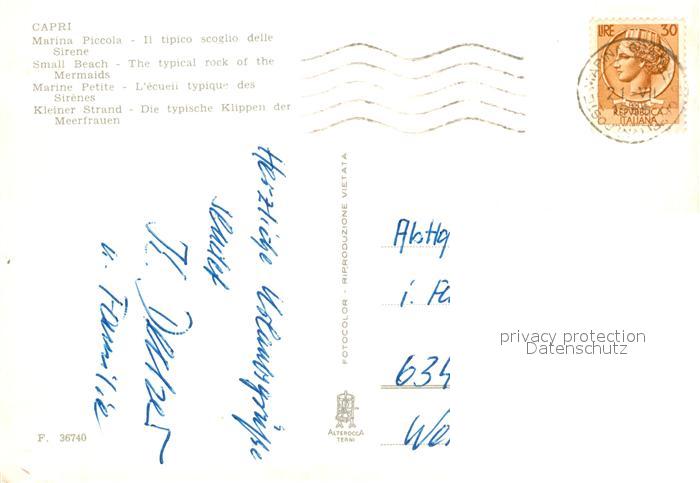 CAPRI
Marina Piccola - Il tipico scoglio delle
Sirene
Small Beach - The typical rock of the
Mermaids
Marine Petite - L'écueil typique des
Sirènes
Kleiner Strand - Die typische Klippen der
Meerfrauen
LIRE 30
REPUBBLICA
ITALIANA
Herzliche Urlaubsgrüße
sendet
u. Familie
FOTOCOLOR - RIPRODUZIONE VIETATA
634
privacy protection
Datenschutz
ALTEROCCA
TERNI
F. 36740